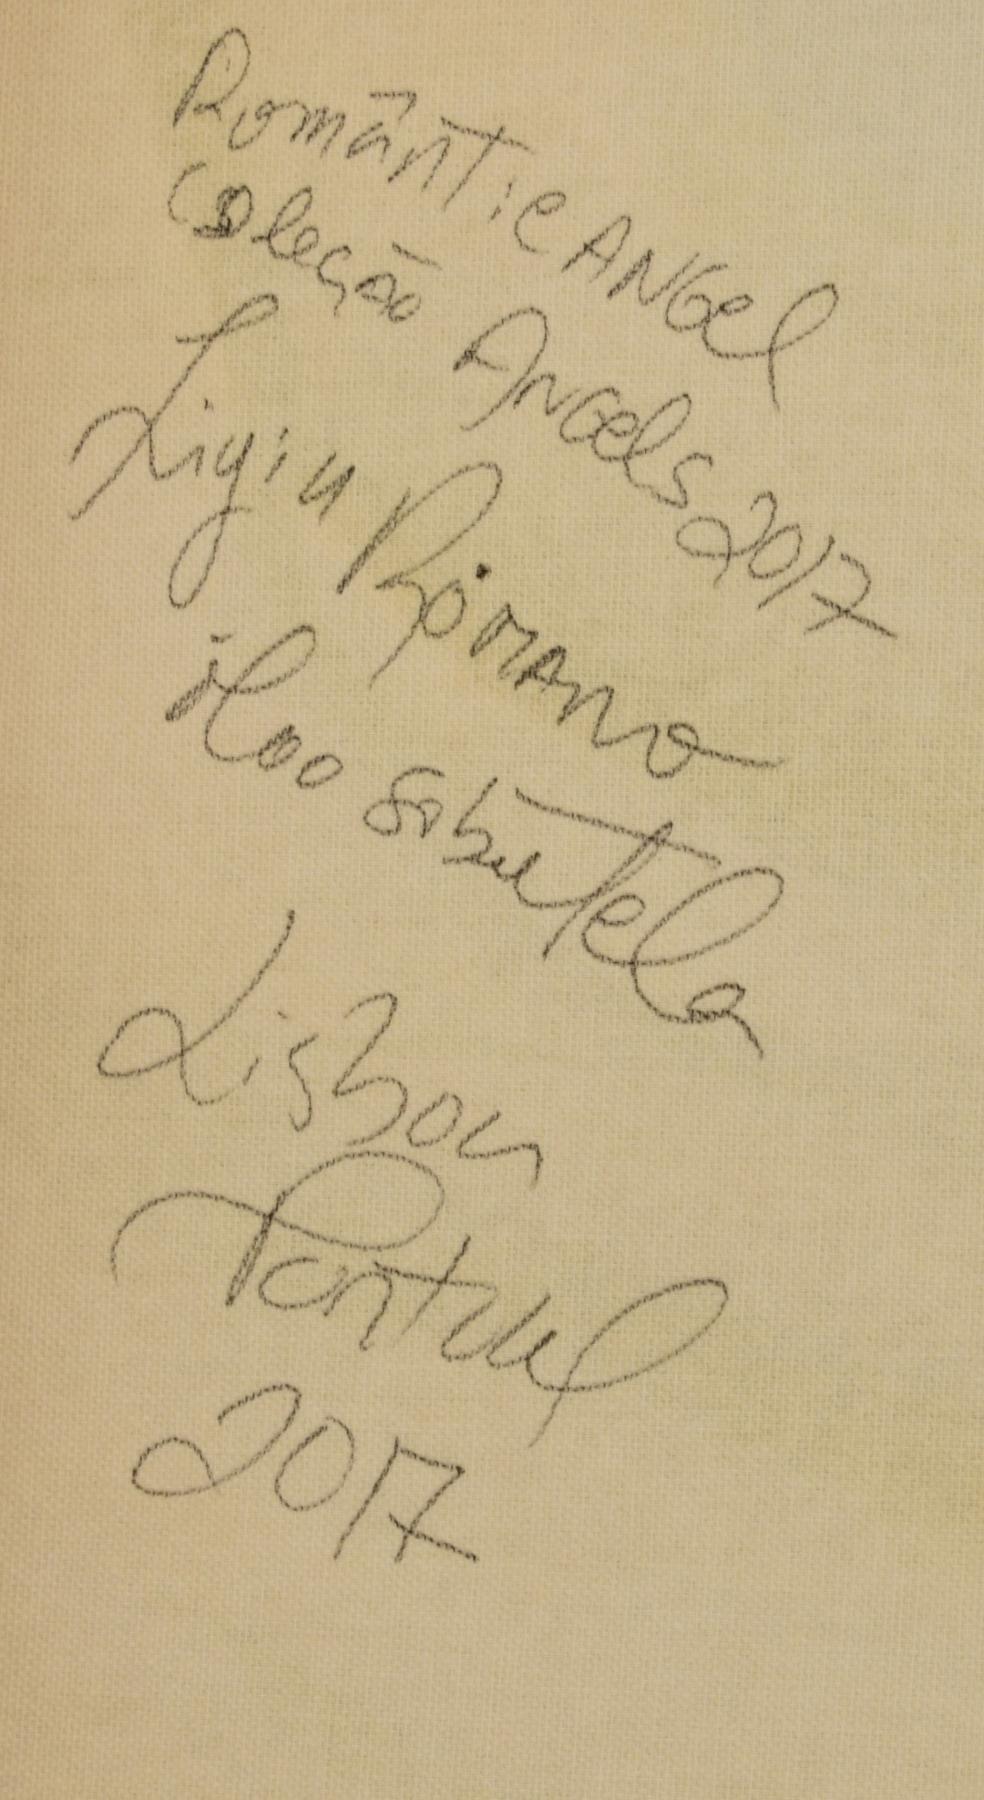 Romântic ANGel
Coleção Angels 2017
Ligia Romano
óleo sobre Tela
Lisboa
Portugal
2017